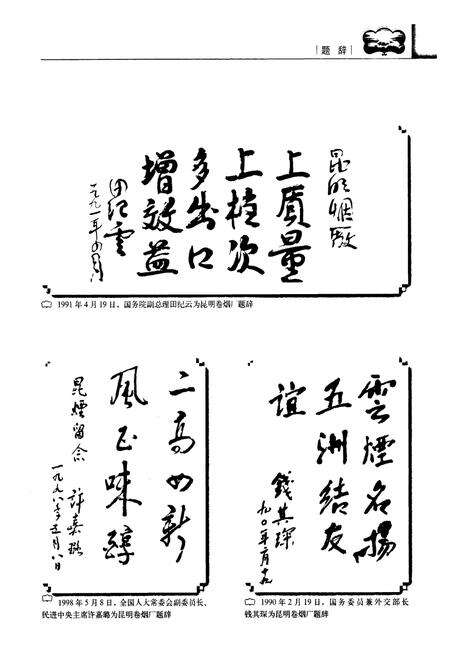 题辞
昆明烟厂
上质量
上档次
多出口
增效益
田纪云
一九九一年四月
1991年4月19日，国务院副总理田纪云为昆明卷烟厂题辞
二高四新
风正味醇
昆烟留念
许嘉璐
一九九八年五月八日
1998年5月8日，全国人大常委会副委员长、
民进中央主席许嘉璐为昆明卷烟厂题辞
雲煙名揚
五洲结友
谊
錢其琛
九〇年二月十九
1990年2月19日，国务委员兼外交部长
钱其琛为昆明卷烟厂题辞